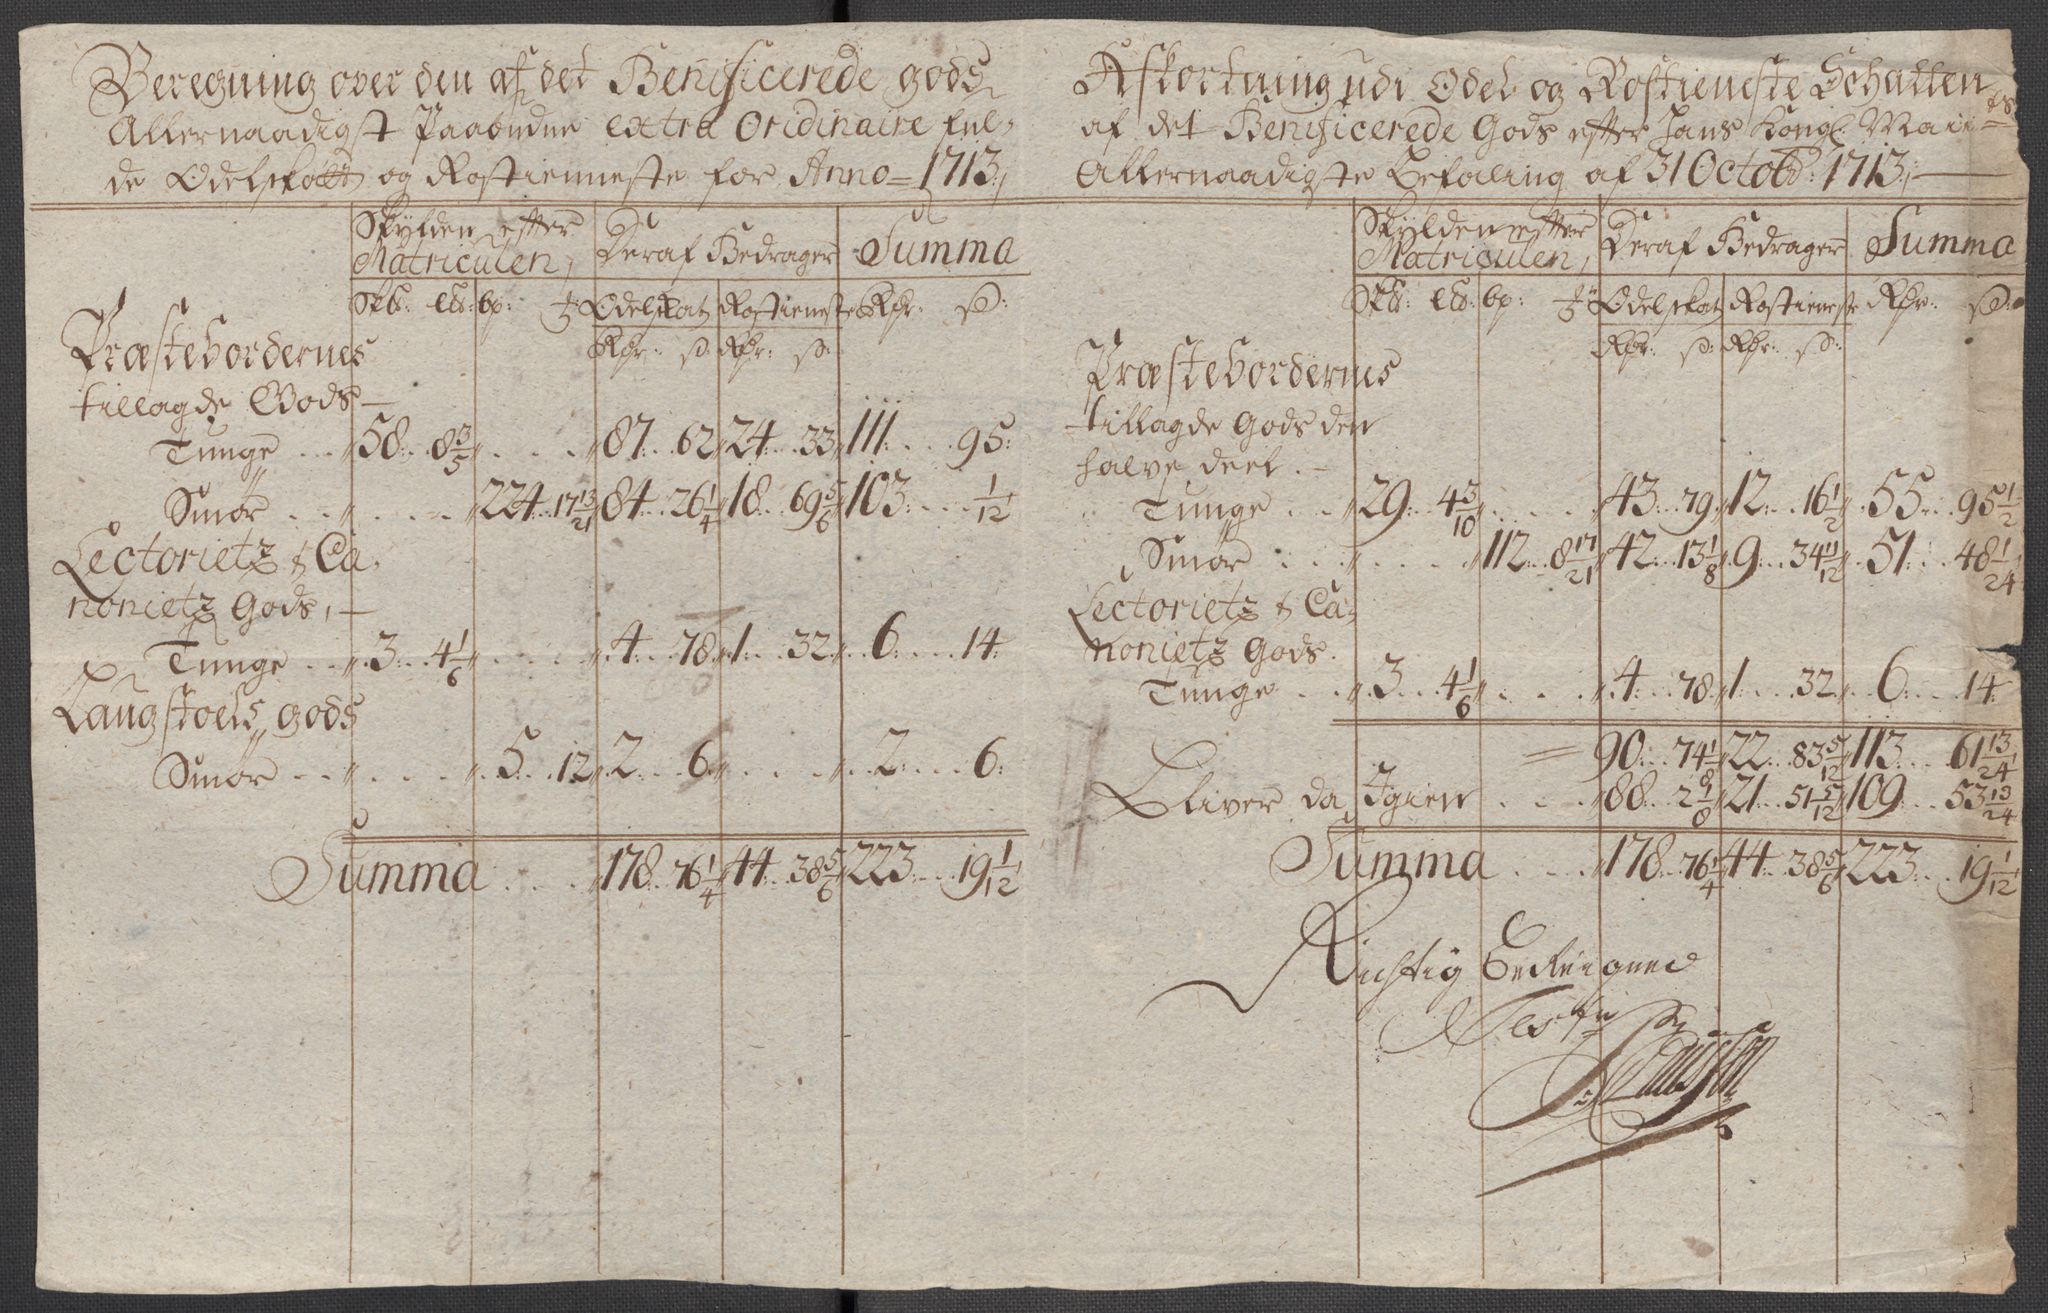 Beregning over den af det Beneficerede gods
Allernaadigst Paabudne extra Oridinaire ful-
de Odelskatt og Rostienneste for Anno 1713,
Skylden efter Deraf Bedrager Summa
Matriculen,
bp: Odelskat Rostieneste Rdr: s:
Rdr: s: Rdr: s:
Præstebordernes
tillagde Gods
Tunge 58 8 3/5 87 62 24 33 111 95
Smør 224 17 13/21 84 26 1/4 18 69 5/6 103 1/12
Lectorietz & Ca-
nonietz Gods,
Tunge 3 4 1/6 4 78 1 32 6 14
Laugstoels gods
Smør 5 12 2 6 2 6
Summa 178 76 1/4 44 38 5/6 223 19 1/12
Afkortning udi Odel og Rostieneste Schatten
af det Beneficerede Gods efter Hans Kongl: Maii-ts
Allernaadigste Befaling af 31 Octobr: 1713,
Skylden efter Deraf Bedrager Summa
Matriculen,
bp: Odelskat Rostieneste Rdr: s:
Rdr: s: Rdr: s:
Præstebordernes
tillagde Gods den
halve deel
Tunge 29 4 3/10 43 79 12 16 1/2 55 95 1/2
Smør 112 8 17/21 42 13 1/8 9 34 11/12 51 48 1/24
Lectorietz & Ca-
nonietz Gods
Tunge 3 4 1/6 4 78 1 32 6 14
90 74 1/8 22 83 5/12 113 61 13/24
Bliver da Igien 88 2 1/8 21 51 5/12 109 53 13/24
Summa 178 76 1/4 44 38 5/6 223 19 1/12
Richtig